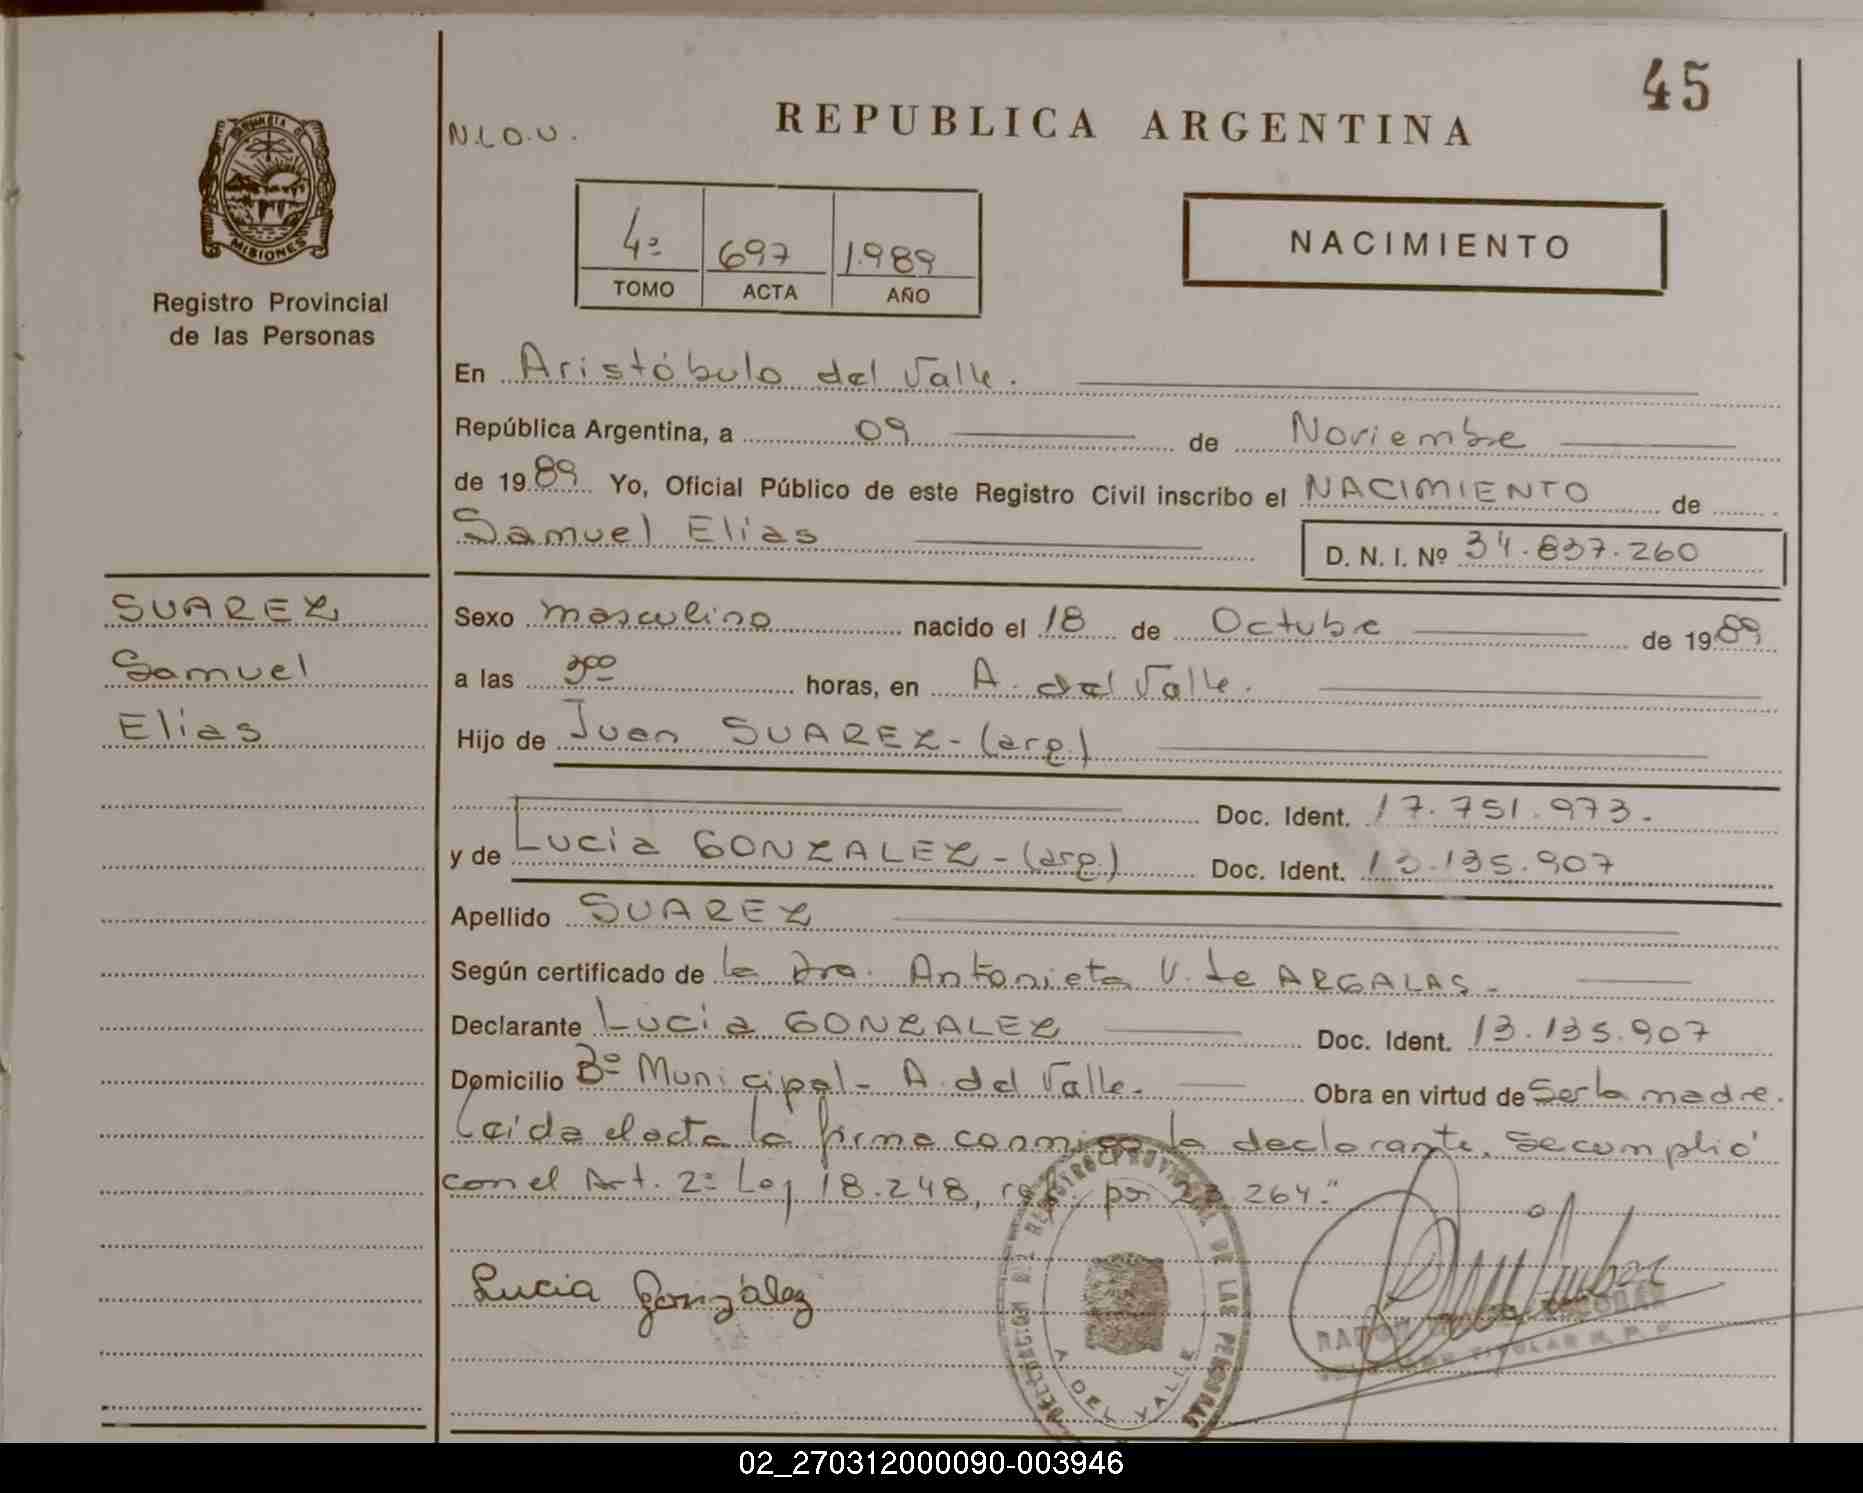 45
REPUBLICA ARGENTINA
N.L.O.U.
MISIONES
Registro Provincial
de las Personas
4º 697 1.989
TOMO ACTA AÑO
NACIMIENTO
En Aristóbulo del Valle.
República Argentina, a 09 de Noviembre
de 1989 Yo, Oficial Público de este Registro Civil inscribo el NACIMIENTO de
Samuel Elias D. N. I. Nº 34.837.260
SUAREZ
Samuel
Elias
Sexo masculino nacido el 18 de Octubre de 1989
a las horas, en A. del Valle.
Hijo de Juan SUAREZ-(arg.)
Doc. Ident. 17.751.973.
y de Lucia GONZALEZ-(arg.) Doc. Ident. 13.135.907
Apellido SUAREZ
Según certificado de la Dra. Antonieta V. de ARGALAS-
Declarante Lucia GONZALEZ Doc. Ident. 13.135.907
Domicilio Bº Municipal- A. del Valle- Obra en virtud de Ser la madre.
Leída el acta la firma conmigo la declarante. Se cumplió
con el Art. 2º Ley 18.248, por 264."
Lucia González
REGISTRO PROVINCIAL DE LAS PERSONAS
A. DEL VALLE
TITULAR
02_270312000090-003946